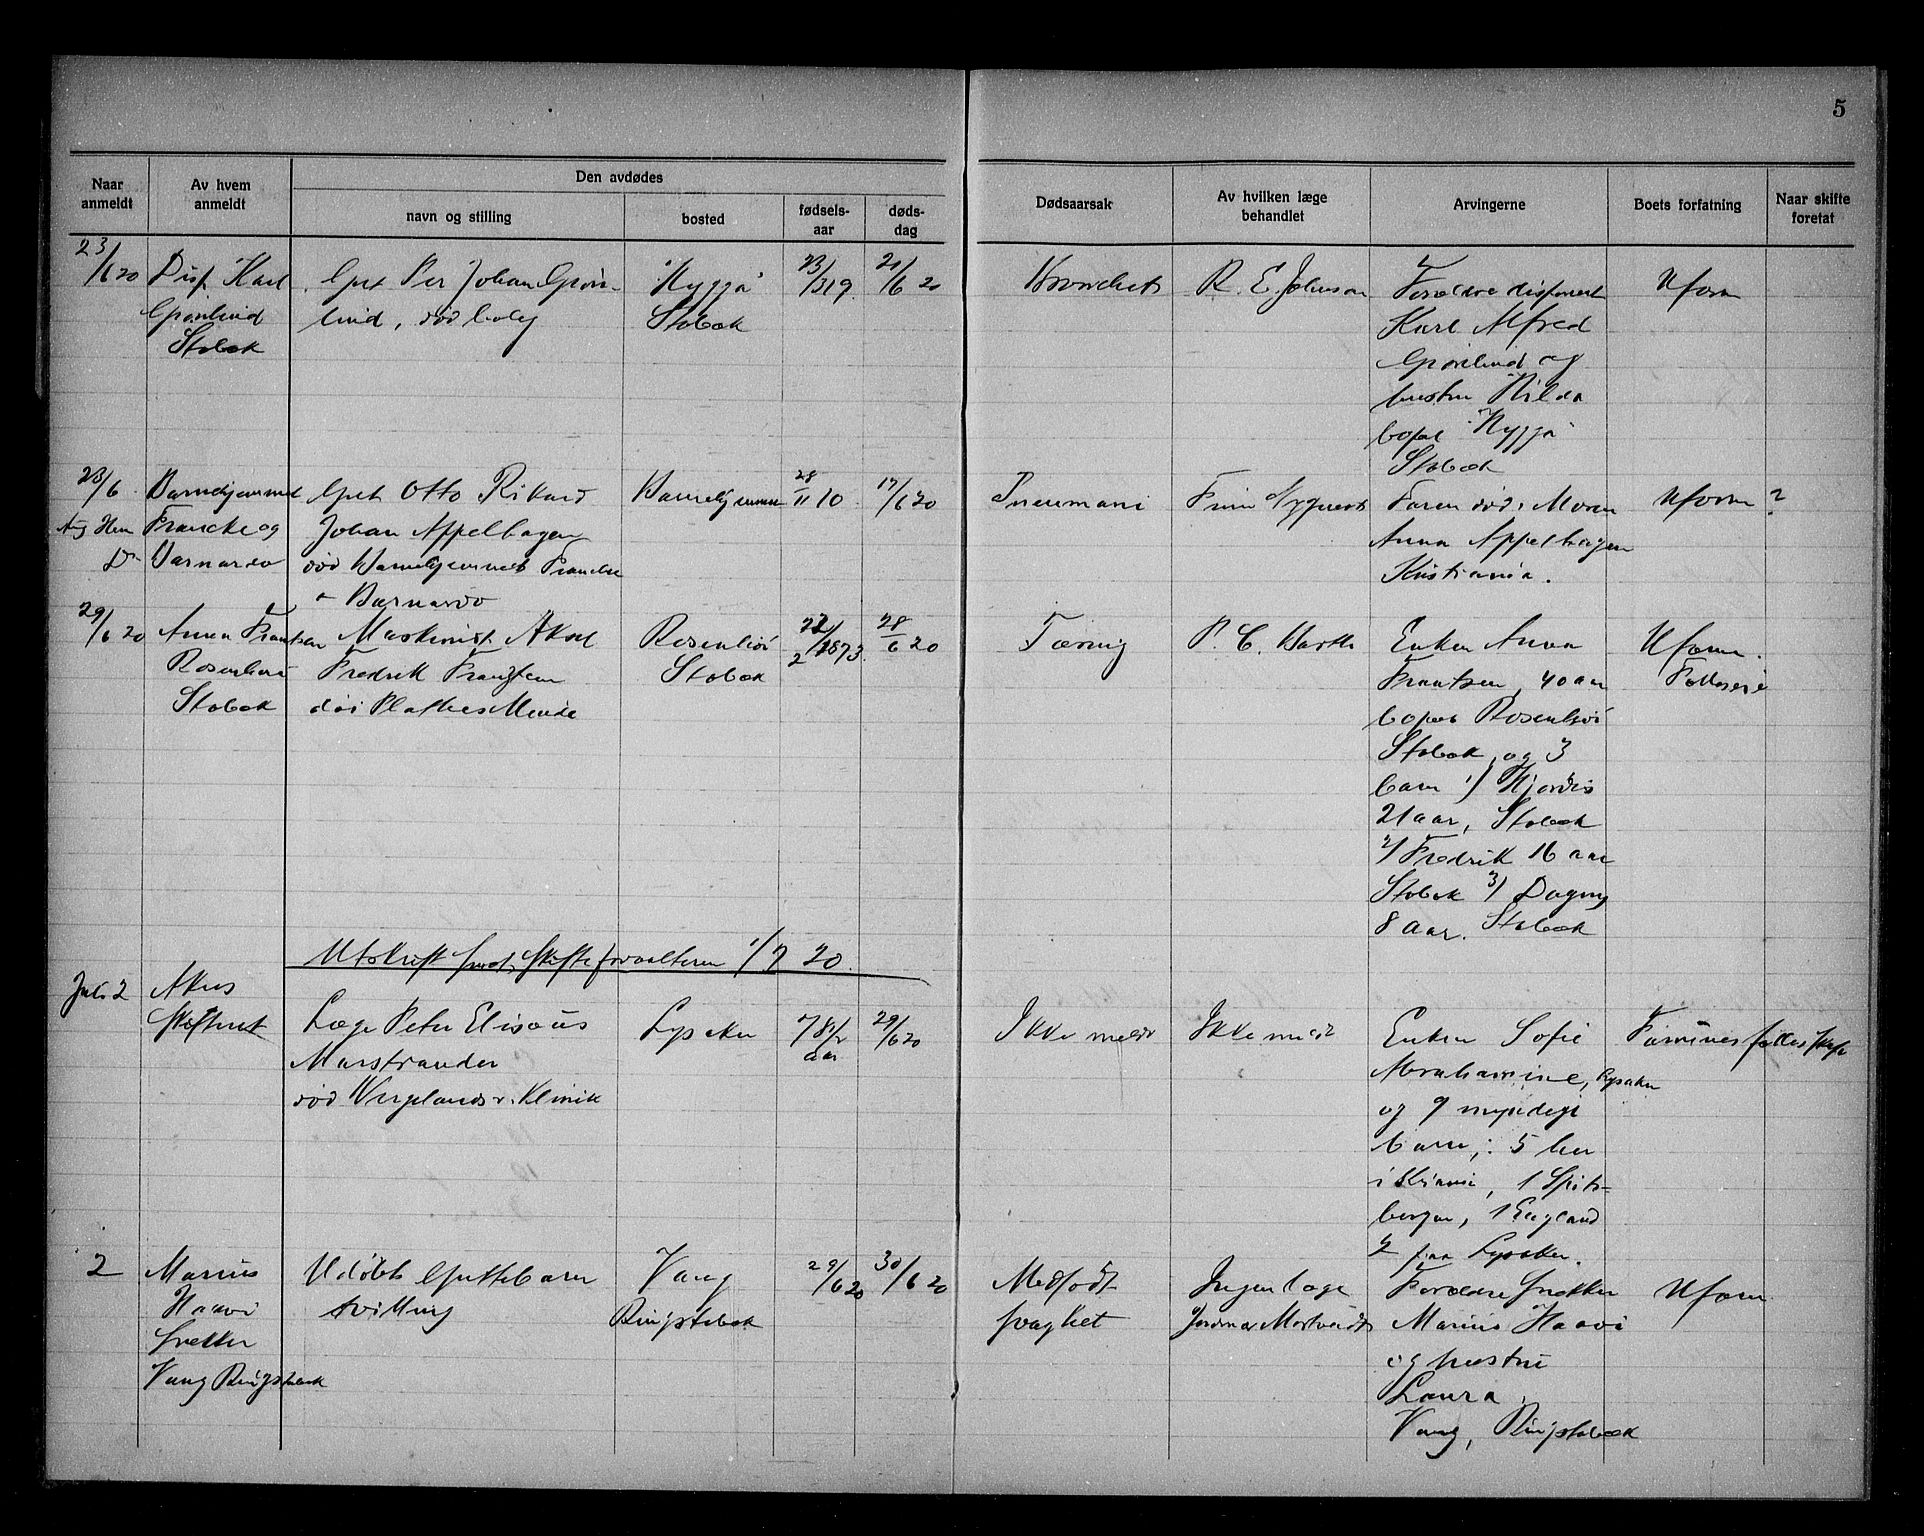 5
Naar anmeldt
Av hvem anmeldt
Den avdødes
navn og stilling
bosted
fødselsaar
dødsdag
Dødsaarsak
Av hvilken læge behandlet
Arvingerne
Boets forfatning
Naar skifte foretat
23/6 20
Disp. Karl
Grönlund
Stabæk
Gut Per Johan Grön-
lund, död bolig
"Hygga"
Stabæk
23/3 19
21/6 20
Bronchit
R. E. Johnson
Forældre disponent
Karl Alfred
Grönlund og
hustru Hilda
bopæl "Hygga"
Stabæk
Uform
23/6
Barnehjemmet
Francke og
Barnardo
Gut Otto Rikard
Johan Appelhagen
död Barnehjemmet Francke
o Barnardo
Barnehjemmet
28/11 10
17/6 20
Pneumoni
Faren död, Moren
Anna Appelhagen
Kristiania.
Uform?
29/6 20
Anna Frantzen
Rosenhöi
Stabæk
Maskinist Aksel
Fredrik Frantzen
död Plathes Minde
Rosenhöi
Stabæk
22/2 1873
28/6 20
Tæring
P. C. Barth
Enken Anna
Frantzen, 40 aar
bopæl Rosenhöi
Stabæk, og 3
barn 1/ Hjördis
21 aar, Stabæk
2/ Fredrik 16 aar
Stabæk 3/ Dagny
8 aar. Stabæk
Uform.
Fælleseie
Utskrift sendt Skifteforvalteren 1/7 20.
Juli 2
Akers
Skifteret
Læge Peter Elisæus
Marstrander
död Wergelandsv. Klinik
Lysaker
78 1/2
aar
29/6 20
Ikke meldt
Ikke meldt
Enken Sofie
Abrahamine, Lysaker
og 9 myndige
barn,: 5 her
i Kr.ania, 1 Spits-
bergen, 1 England
2 paa Lysaker.
2
Marius
Haavi
Snekker
Vang Ringstabæk
Udöbt Guttebarn
tvilling
Vang
Ringstabæk
29/6 20
30/6 20
Medfödt
svaghet
Ingen læge
Forældre Snekker
Marius Haavi
og hustru
Laura,
Vang, Ringstabæk
Uform